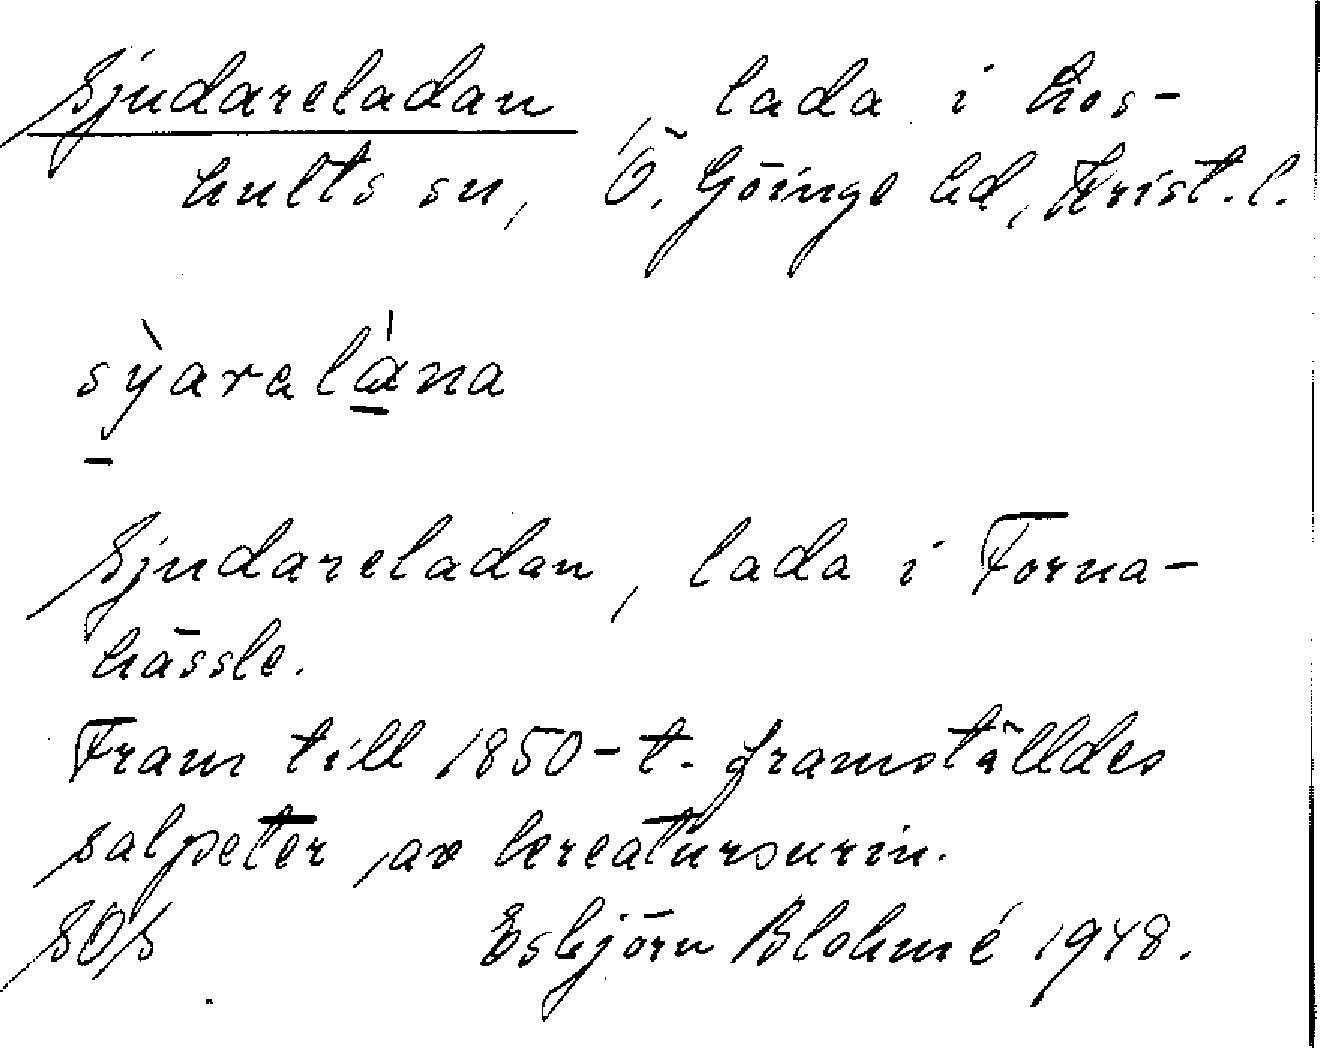 Sjudareladan, lada i Hos-
hults sn, Ö. Göinge hd, Krist. l.
sỳaralána
Sjudareladan, lada i Forna-
hässle.
Fram till 1850-t. framställdes
salpeter av kreatursurin.
SOS Esbjörn Blohmé 1948.